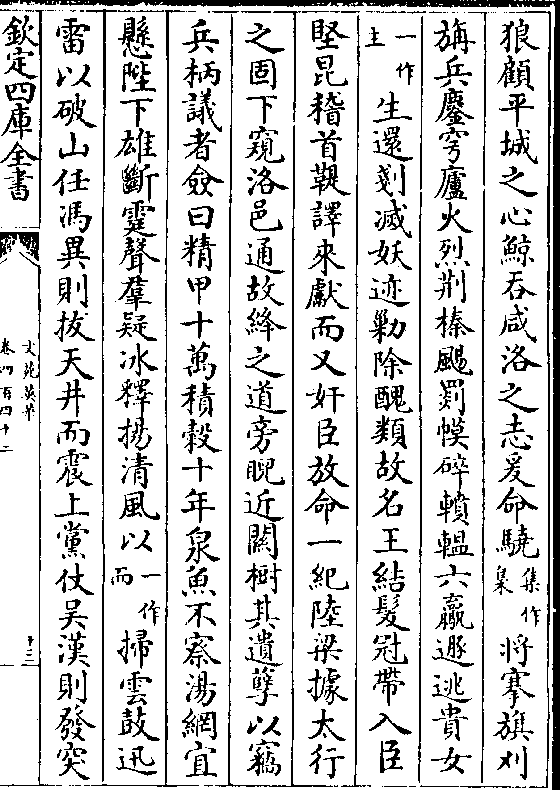 狼顧平城之心鯨吞咸洛之志爰命驍集作梟將搴旗刈
旃兵鏖穹廬火烈荆榛颺罽幙碎轒輼六驘遯逃貴女
一作主生還剗滅妖迹勦除醜類故名王結髮冠帶入臣
堅昆稽首鞮譯來獻而又奸臣放命一紀陸梁據太行
之固下窺洛邑通故絳之道旁睨近關樹其遺孽以竊
兵柄議者僉曰精甲十萬積穀十年泉魚不察湯網宜
懸陛下雄斷霆聲羣疑冰釋揚清風以一作而掃雲鼓迅
雷以破山任馮異則拔天井而震上黨仗吳漢則發突
欽定四庫全書
文苑英華
卷四百四十二
十三